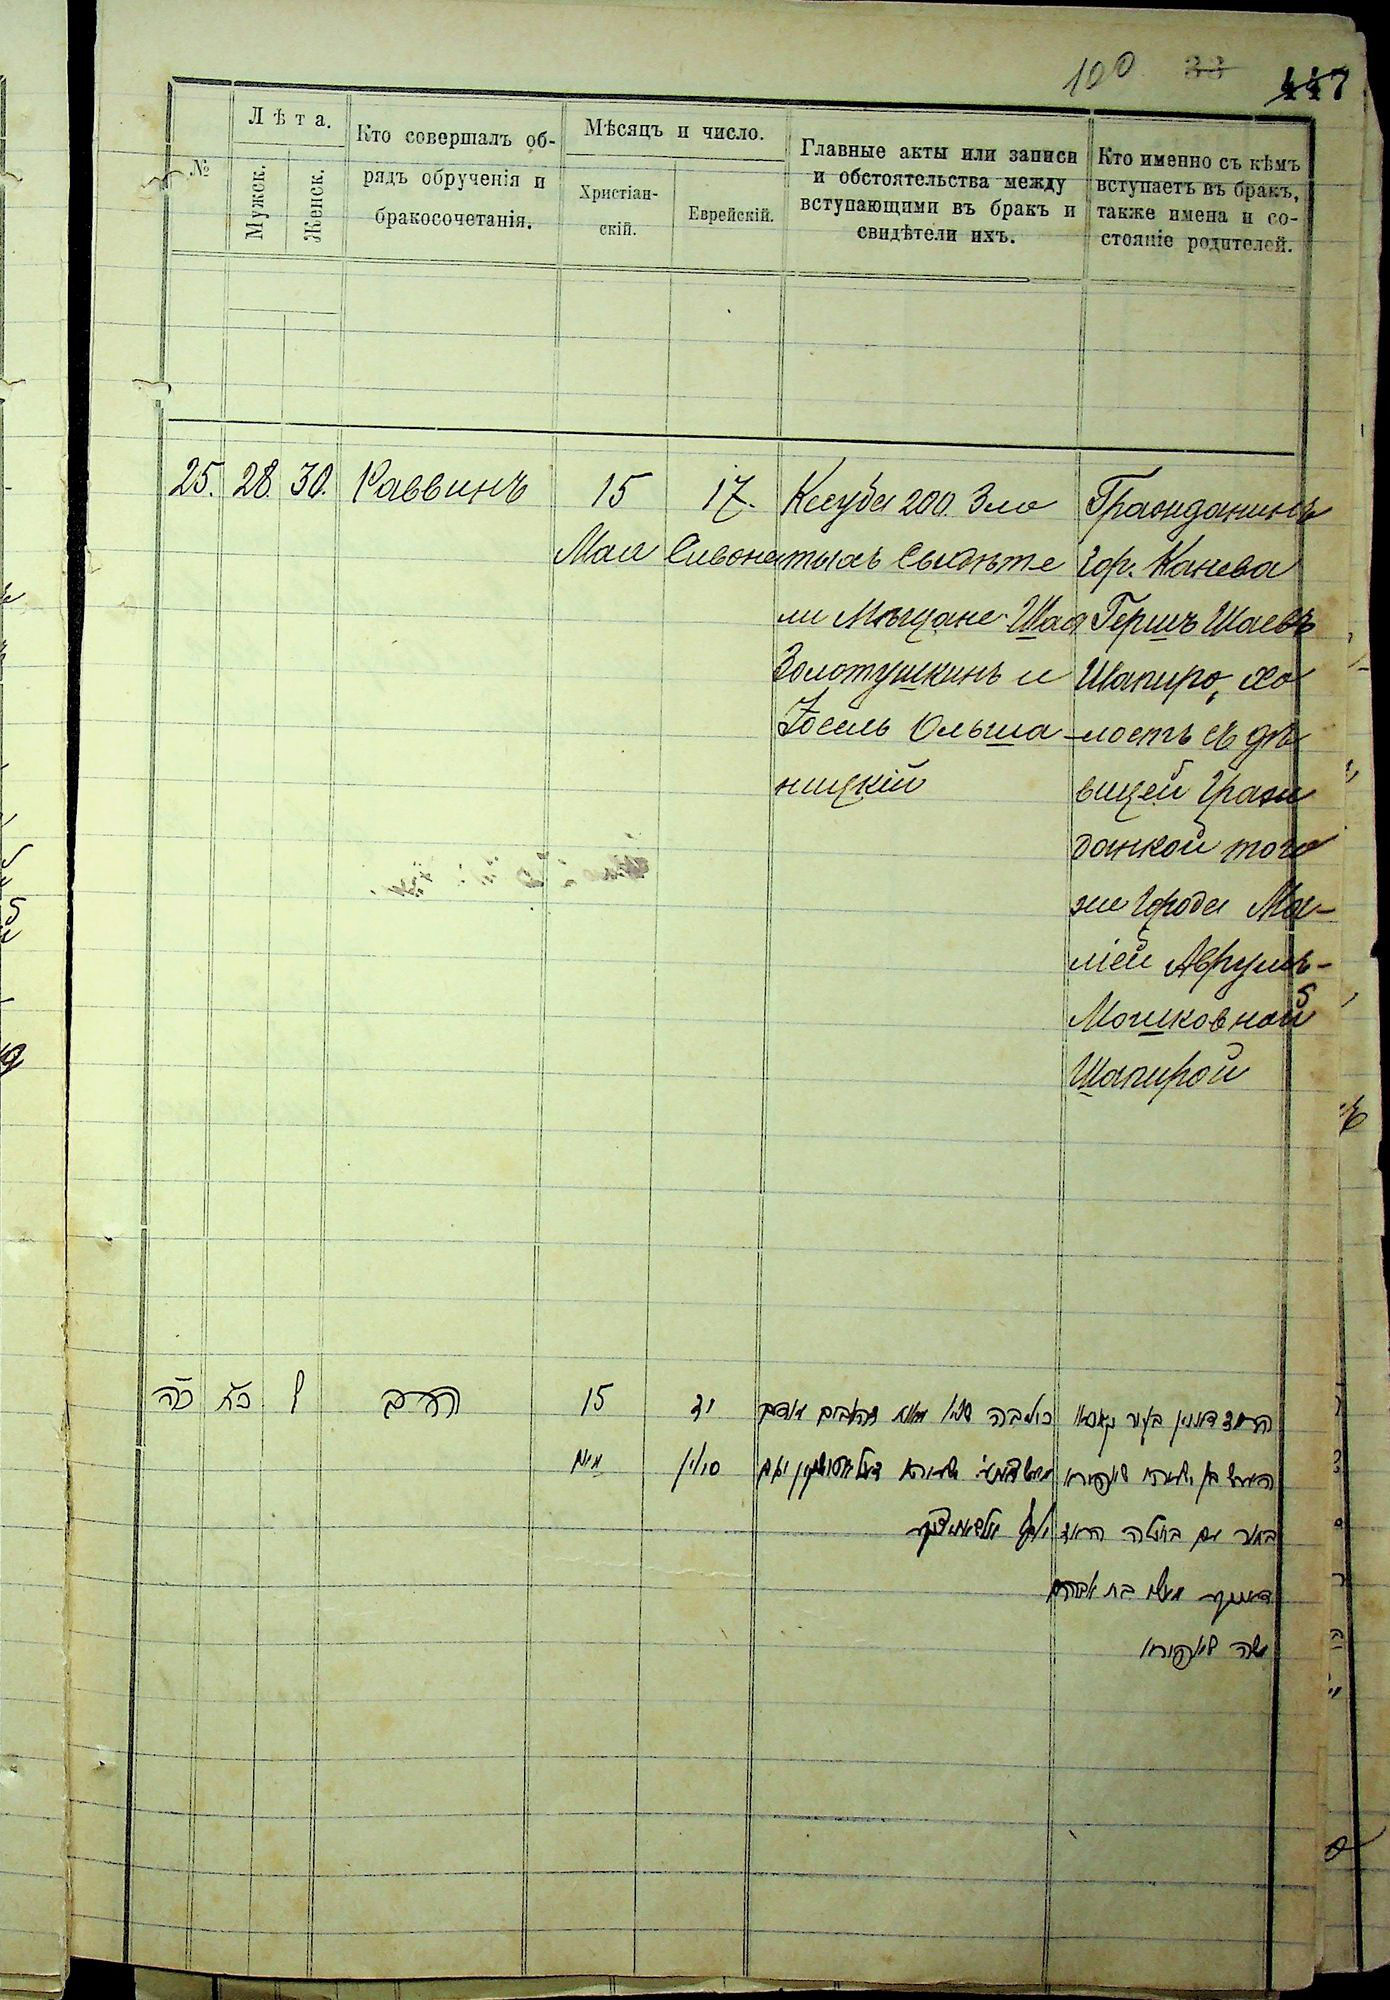 100 33 447
№
Лѣта.
Мужск.
Женск.
Кто совершалъ об-
рядъ обрученія и
бракосочетанія.
Мѣсяцъ и число.
Христіан-
скій.
Еврейскій.
Главные акты или записи
и обстоятельства между
вступающими въ бракъ и
свидѣтели ихъ.
Кто именно съ кѣмъ
вступаетъ въ бракъ,
также имена и со-
стояніе родителей.
25. 28. 30. Раввинъ
15
Мая
17.
Сивона
Ксуба 200 Зло
тыхъ Свидѣте
ли Мѣщане Шая
Золотушкинъ и
Іосель Ольша-
ницкій
Гражданинъ
гор. Канева
Гершъ Шаевъ
Шапиро, хо
лостъ съ дѣ
вицей Граж
данкой того
же города Ма-
ліей Аврумъ-
Мошковной
Шапирой
כה כח ל הרב
15
מאי
יז
סיון
כתובה
מאת זהובים
בן שאפירא
עם בתולה
בת אברהם
משה שאפירא